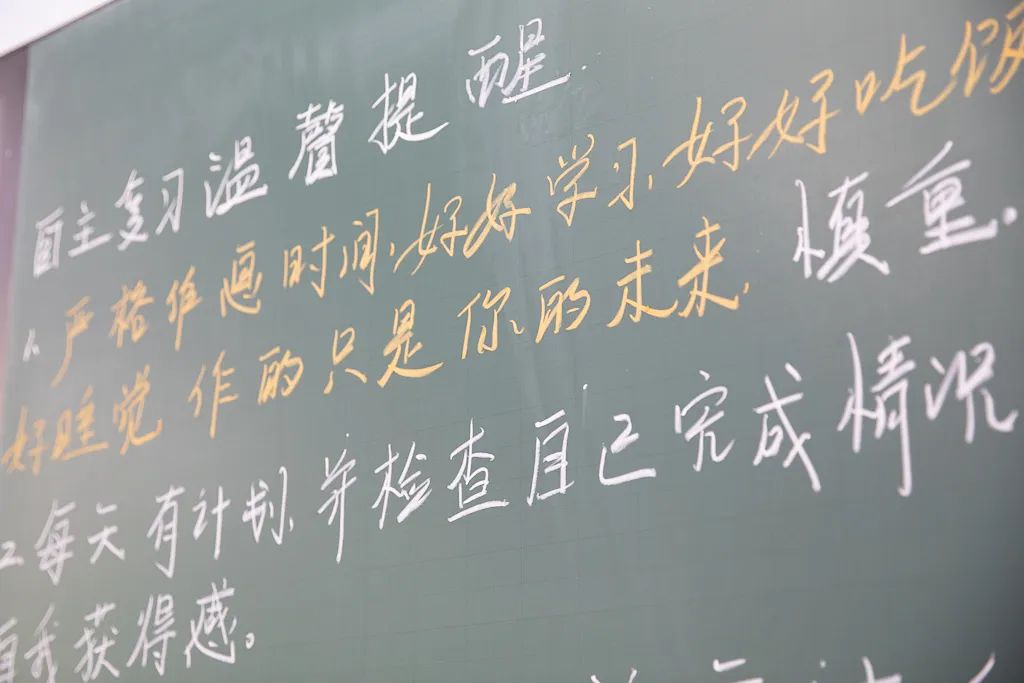 自主复习温馨提醒.
1. 严格作息时间,好好学习、好好吃饭
好睡觉 作的只是你的未来. 慎重.
2. 每天有计划、并检查自己完成情况
自我获得感。